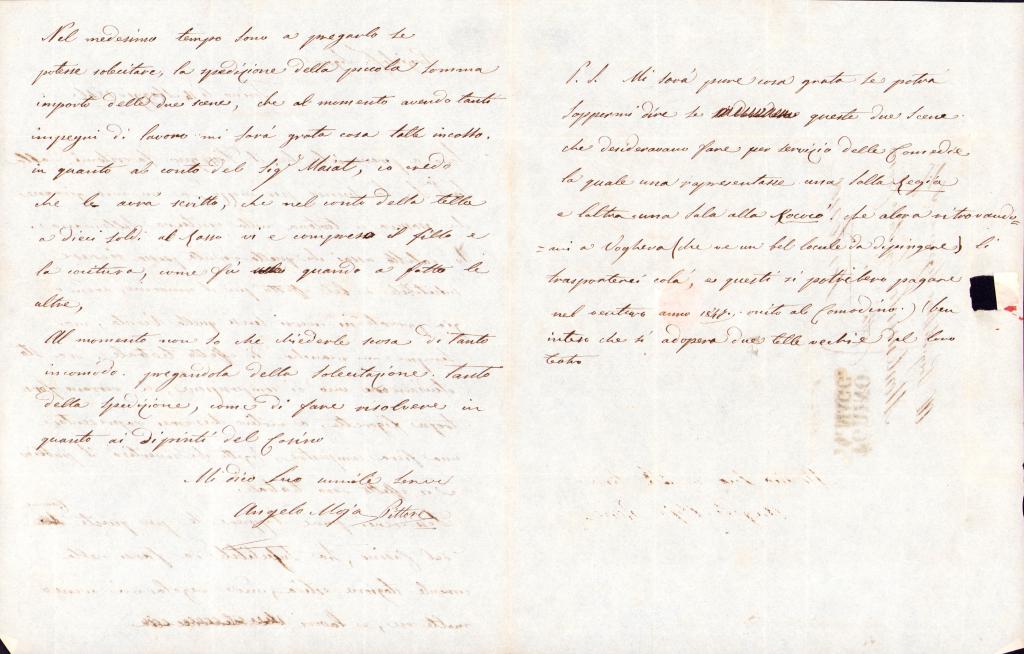 Nel medesimo tempo sono a pregarlo se
potesse solecitare, la spedizione della piccola somma
importo delle due scene, che al momento avendo tanti
impegni di lavoro mi sarà grata cosa tale incasso.
in quanto al conto del Sig.r Masat, io credo
che le avrà scritto, che nel conto della tella
a dieci soldi al Rasso vi e compreso il fillo e
la coucitura, come fù quando a fatto le
altre,
Al momento non so che chiederle scusa di tanto
incomodo. pregandola della solecitazione. tanto
della spedizione, come di fare risolvere in
quanto ai dipinti del Casino
Mi dico Suo umile Servo
Angelo Moja Pittore
P. S. Mi sarà pure cosa grata se potrà
sappermi dire se queste due Scene
che desideravano fare per servizio delle Comedie
la quale una rapresentasse una Salla Regia
e l'altra una Sala alla Rococò, che alora ritrovando=
=mi a Voghera (che ve un bel locale da dipingere) li
trasporterei colà, e questi si potrebero pagare
nel venturo anno 1847. onito al Comodino.) (ben
inteso che si adopera due telle vechie dal loro
teatro